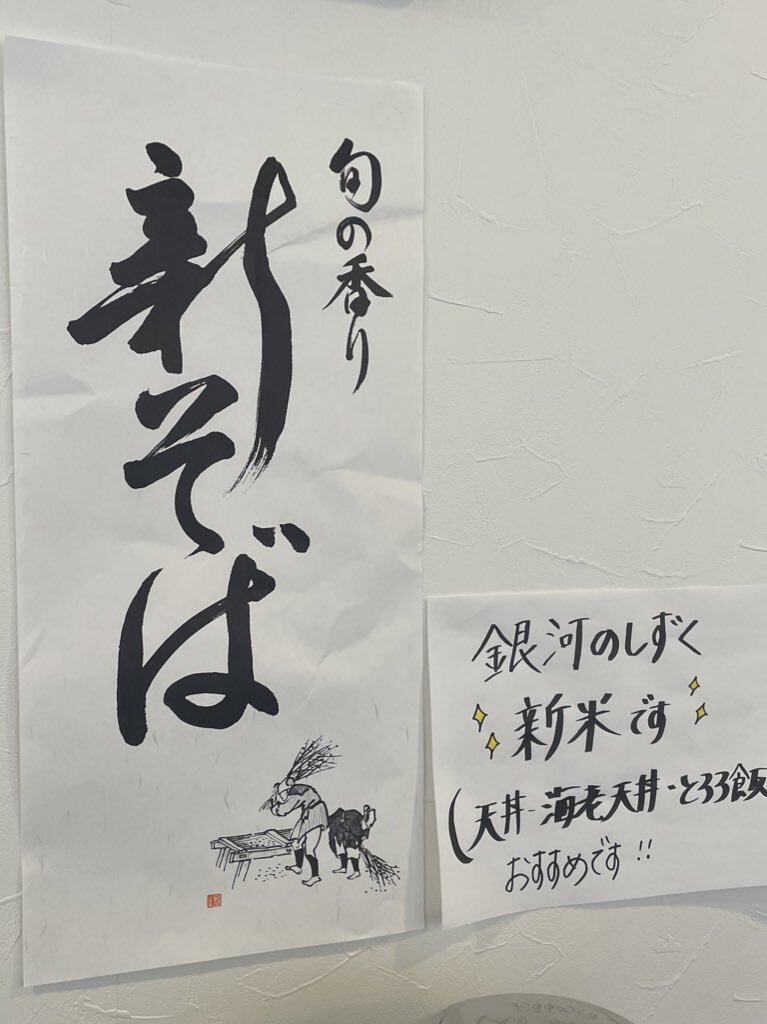 旬の香り
新そば
銀河のしずく
新米です
(天丼・海老天丼・とろろ飯
おすすめです!!